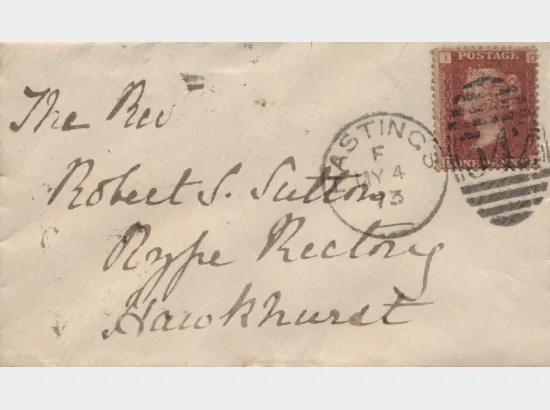 The Rev
Robert S. Sutton
Rype Rectory
Hawkhurst
HASTINGS
F
MY 4
73
I D
POSTAGE
ONE PENNY